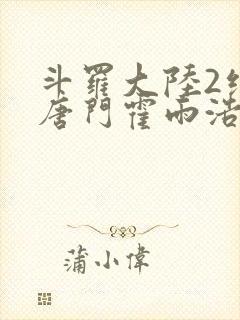 斗羅大陸2
唐門霍雨浩
蒲小偉